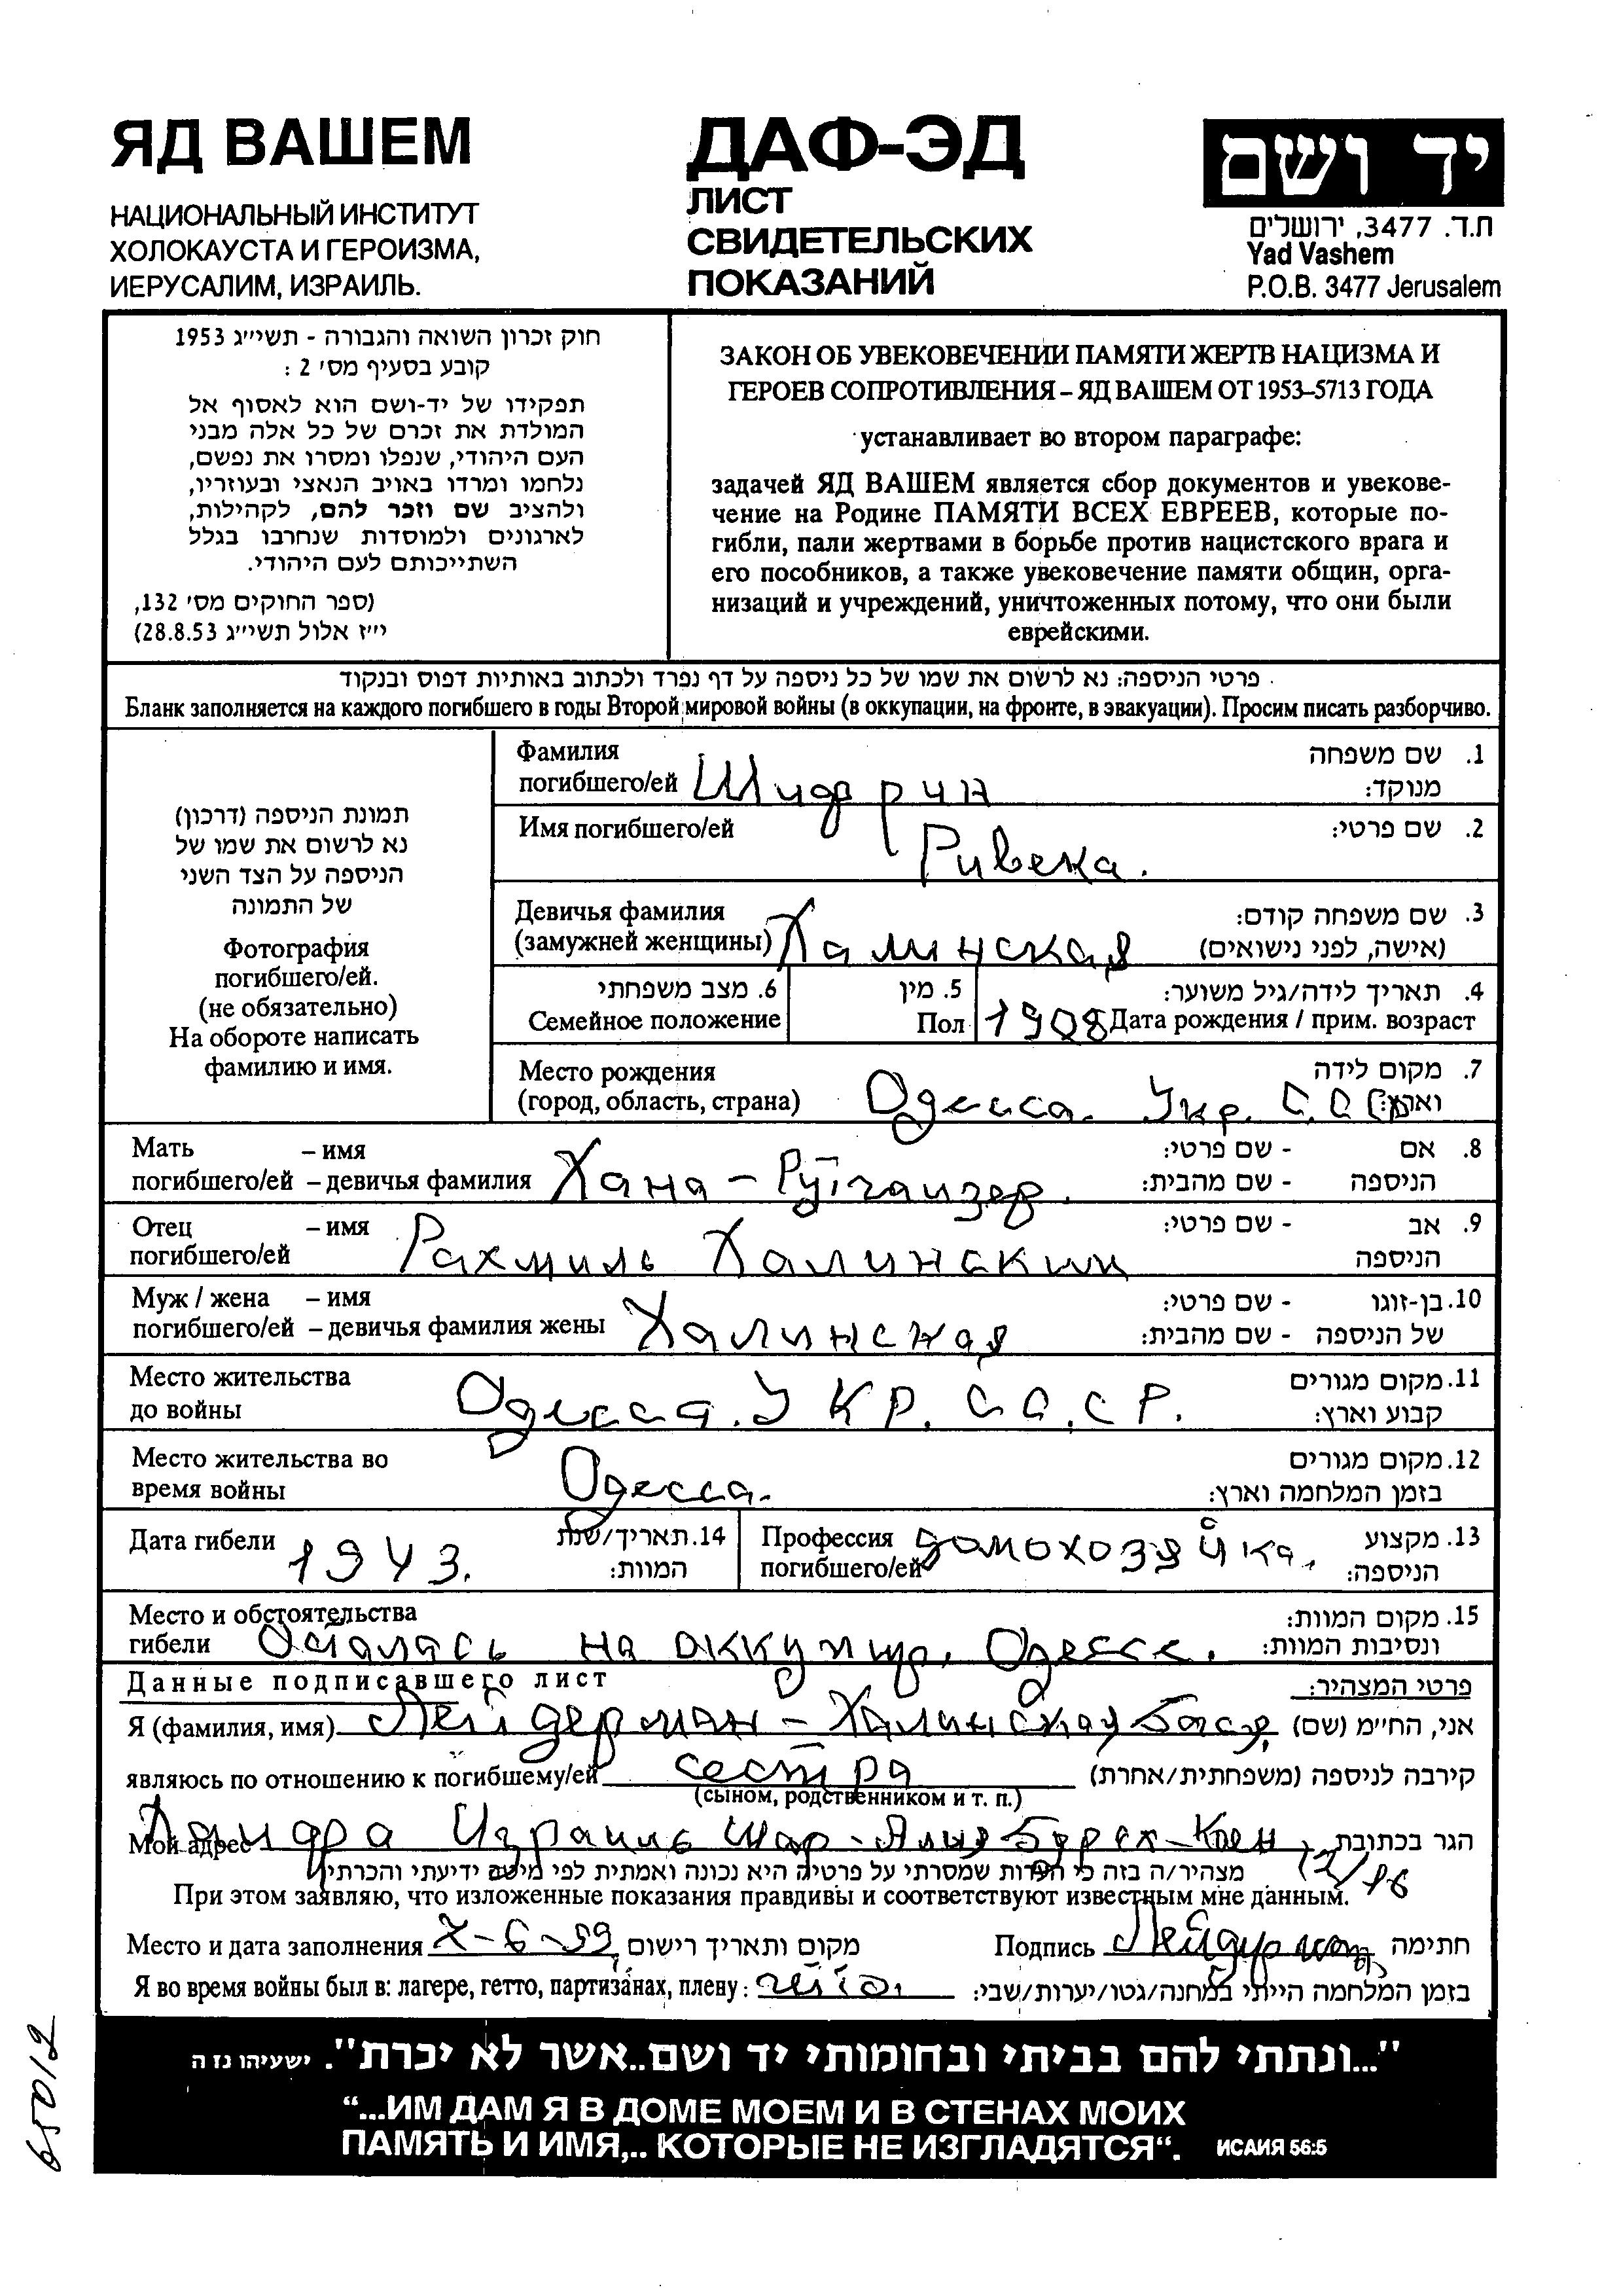 ЯД ВАШЕМ
НАЦИОНАЛЬНЫЙ ИНСТИТУТ
ХОЛОКАУСТА И ГЕРОИЗМА,
ИЕРУСАЛИМ, ИЗРАИЛЬ.
ДАФ-ЭД
ЛИСТ
СВИДЕТЕЛЬСКИХ
ПОКАЗАНИЙ
יד ושם
ת.ד. 3477, ירושלים
Yad Vashem
P.O.B. 3477 Jerusalem
חוק זכרון השואה והגבורה - תשי״ג 1953
קובע בסעיף מס׳ 2 :
תפקידו של יד-ושם הוא לאסוף אל
המולדת את זכרם של כל אלה מבני
העם היהודי, שנפלו ומסרו את נפשם,
נלחמו ומרדו באויב הנאצי ובעוזריו,
ולהציב שם וזכר להם, לקהילות,
לארגונים ולמוסדות שנחרבו בגלל
השתייכותם לעם היהודי.
(ספר החוקים מס׳ 132,
י״ז אלול תשי״ג 28.8.53)
ЗАКОН ОБ УВЕКОВЕЧЕНИИ ПАМЯТИ ЖЕРТВ НАЦИЗМА И
ГЕРОЕВ СОПРОТИВЛЕНИЯ – ЯД ВАШЕМ ОТ 1953–5713 ГОДА
устанавливает во втором параграфе:
задачей ЯД ВАШЕМ является сбор документов и увекове-
чение на Родине ПАМЯТИ ВСЕХ ЕВРЕЕВ, которые по-
гибли, пали жертвами в борьбе против нацистского врага и
его пособников, а также увековечение памяти общин, орга-
низаций и учреждений, уничтоженных потому, что они были
еврейскими.
פרטי הניספה: נא לרשום את שמו של כל ניספה על דף נפרד ולכתוב באותיות דפוס ובנקוד
Бланк заполняется на каждого погибшего в годы Второй мировой войны (в оккупации, на фронте, в эвакуации). Просим писать разборчиво.
תמונת הניספה (דרכון)
נא לרשום את שמו של
הניספה על הצד השני
של התמונה
Фотография
погибшего/ей.
(не обязательно)
На обороте написать
фамилию и имя.
Фамилия 1. שם משפחה
погибшего/ей Шидрин מנוקד:
Имя погибшего/ей 2. שם פרטי:
Ривека.
Девичья фамилия 3. שם משפחה קודם:
(замужней женщины) Халинская (אישה, לפני נישואים)
6. מצב משפחתי 5. מין 4. תאריך לידה/גיל משוער:
Семейное положение Пол 1908 Дата рождения / прим. возраст
Место рождения 7. מקום לידה
(город, область, страна) Одесса. Укр. С.С.С.Р וארץ:
Мать – имя 8. אם - שם פרטי:
погибшего/ей – девичья фамилия Хана – Ройтганзер. הניספה - שם מהבית:
Отец – имя 9. אב - שם פרטי:
погибшего/ей Рахмиль Халинский הניספה
Муж / жена – имя 10. בן-זוגו - שם פרטי:
погибшего/ей – девичья фамилия жены Халинская של הניספה - שם מהבית:
Место жительства 11. מקום מגורים
до войны Одесса. УКР. С.С.С.Р. קבוע וארץ:
Место жительства во 12. מקום מגורים
время войны Одесса. בזמן המלחמה וארץ:
Дата гибели 1943. 14. תאריך/שנת המוות:
Профессия погибшего/ей домохозяйка. 13. מקצוע הניספה:
Место и обстоятельства 15. מקום המוות:
гибели Осталась на оккупир. Одессе. ונסיבות המוות:
Данные подписавшего лист פרטי המצהיר:
Я (фамилия, имя) Лейдерман – Халинская Бася, אני, הח״מ (שם)
являюсь по отношению к погибшему/ей сестра קירבה לניספה (משפחתית/אחרת)
(сыном, родственником и т. п.)
Мой адрес Хаидра Израиль Шар-Алия Бурех-Коен 17/16 הגר בכתובת
מצהיר/ה בזה כי העדות שמסרתי על פרטיה היא נכונה ואמתית לפי מיטב ידיעתי והכרתי
При этом заявляю, что изложенные показания правдивы и соответствуют известным мне данным.
Место и дата заполнения 7-6-99 מקום ותאריך רישום Подпись Лейдерман חתימה
Я во время войны был в: лагере, гетто, партизанах, плену: гетто. בזמן המלחמה הייתי במחנה/גטו/יערות/שבי:
"...ונתתי להם בביתי ובחומותי יד ושם..אשר לא יכרת". ישעיהו נז ה
“...ИМ ДАМ Я В ДОМЕ МОЕМ И В СТЕНАХ МОИХ
ПАМЯТЬ И ИМЯ,.. КОТОРЫЕ НЕ ИЗГЛАДЯТСЯ“. ИСАИЯ 56:5
65012